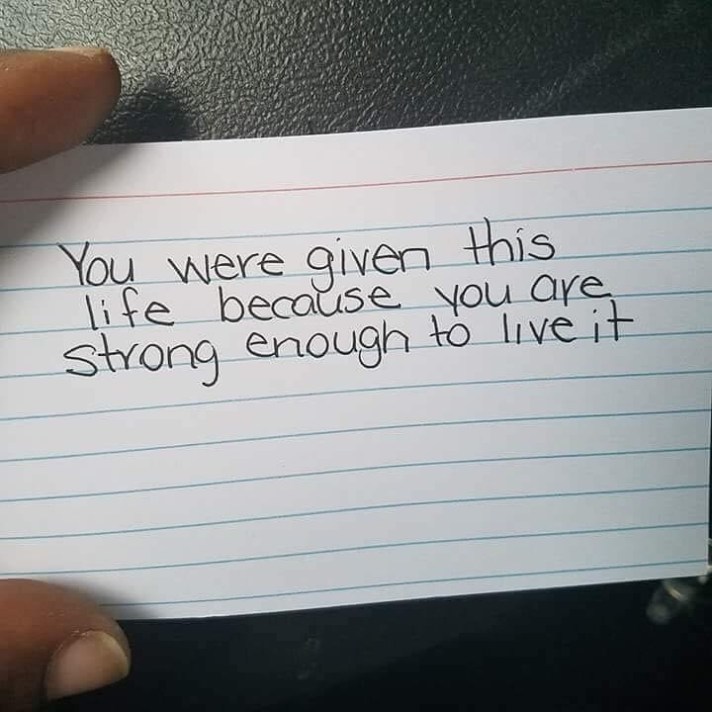 You were given this
life because you are
strong enough to live it